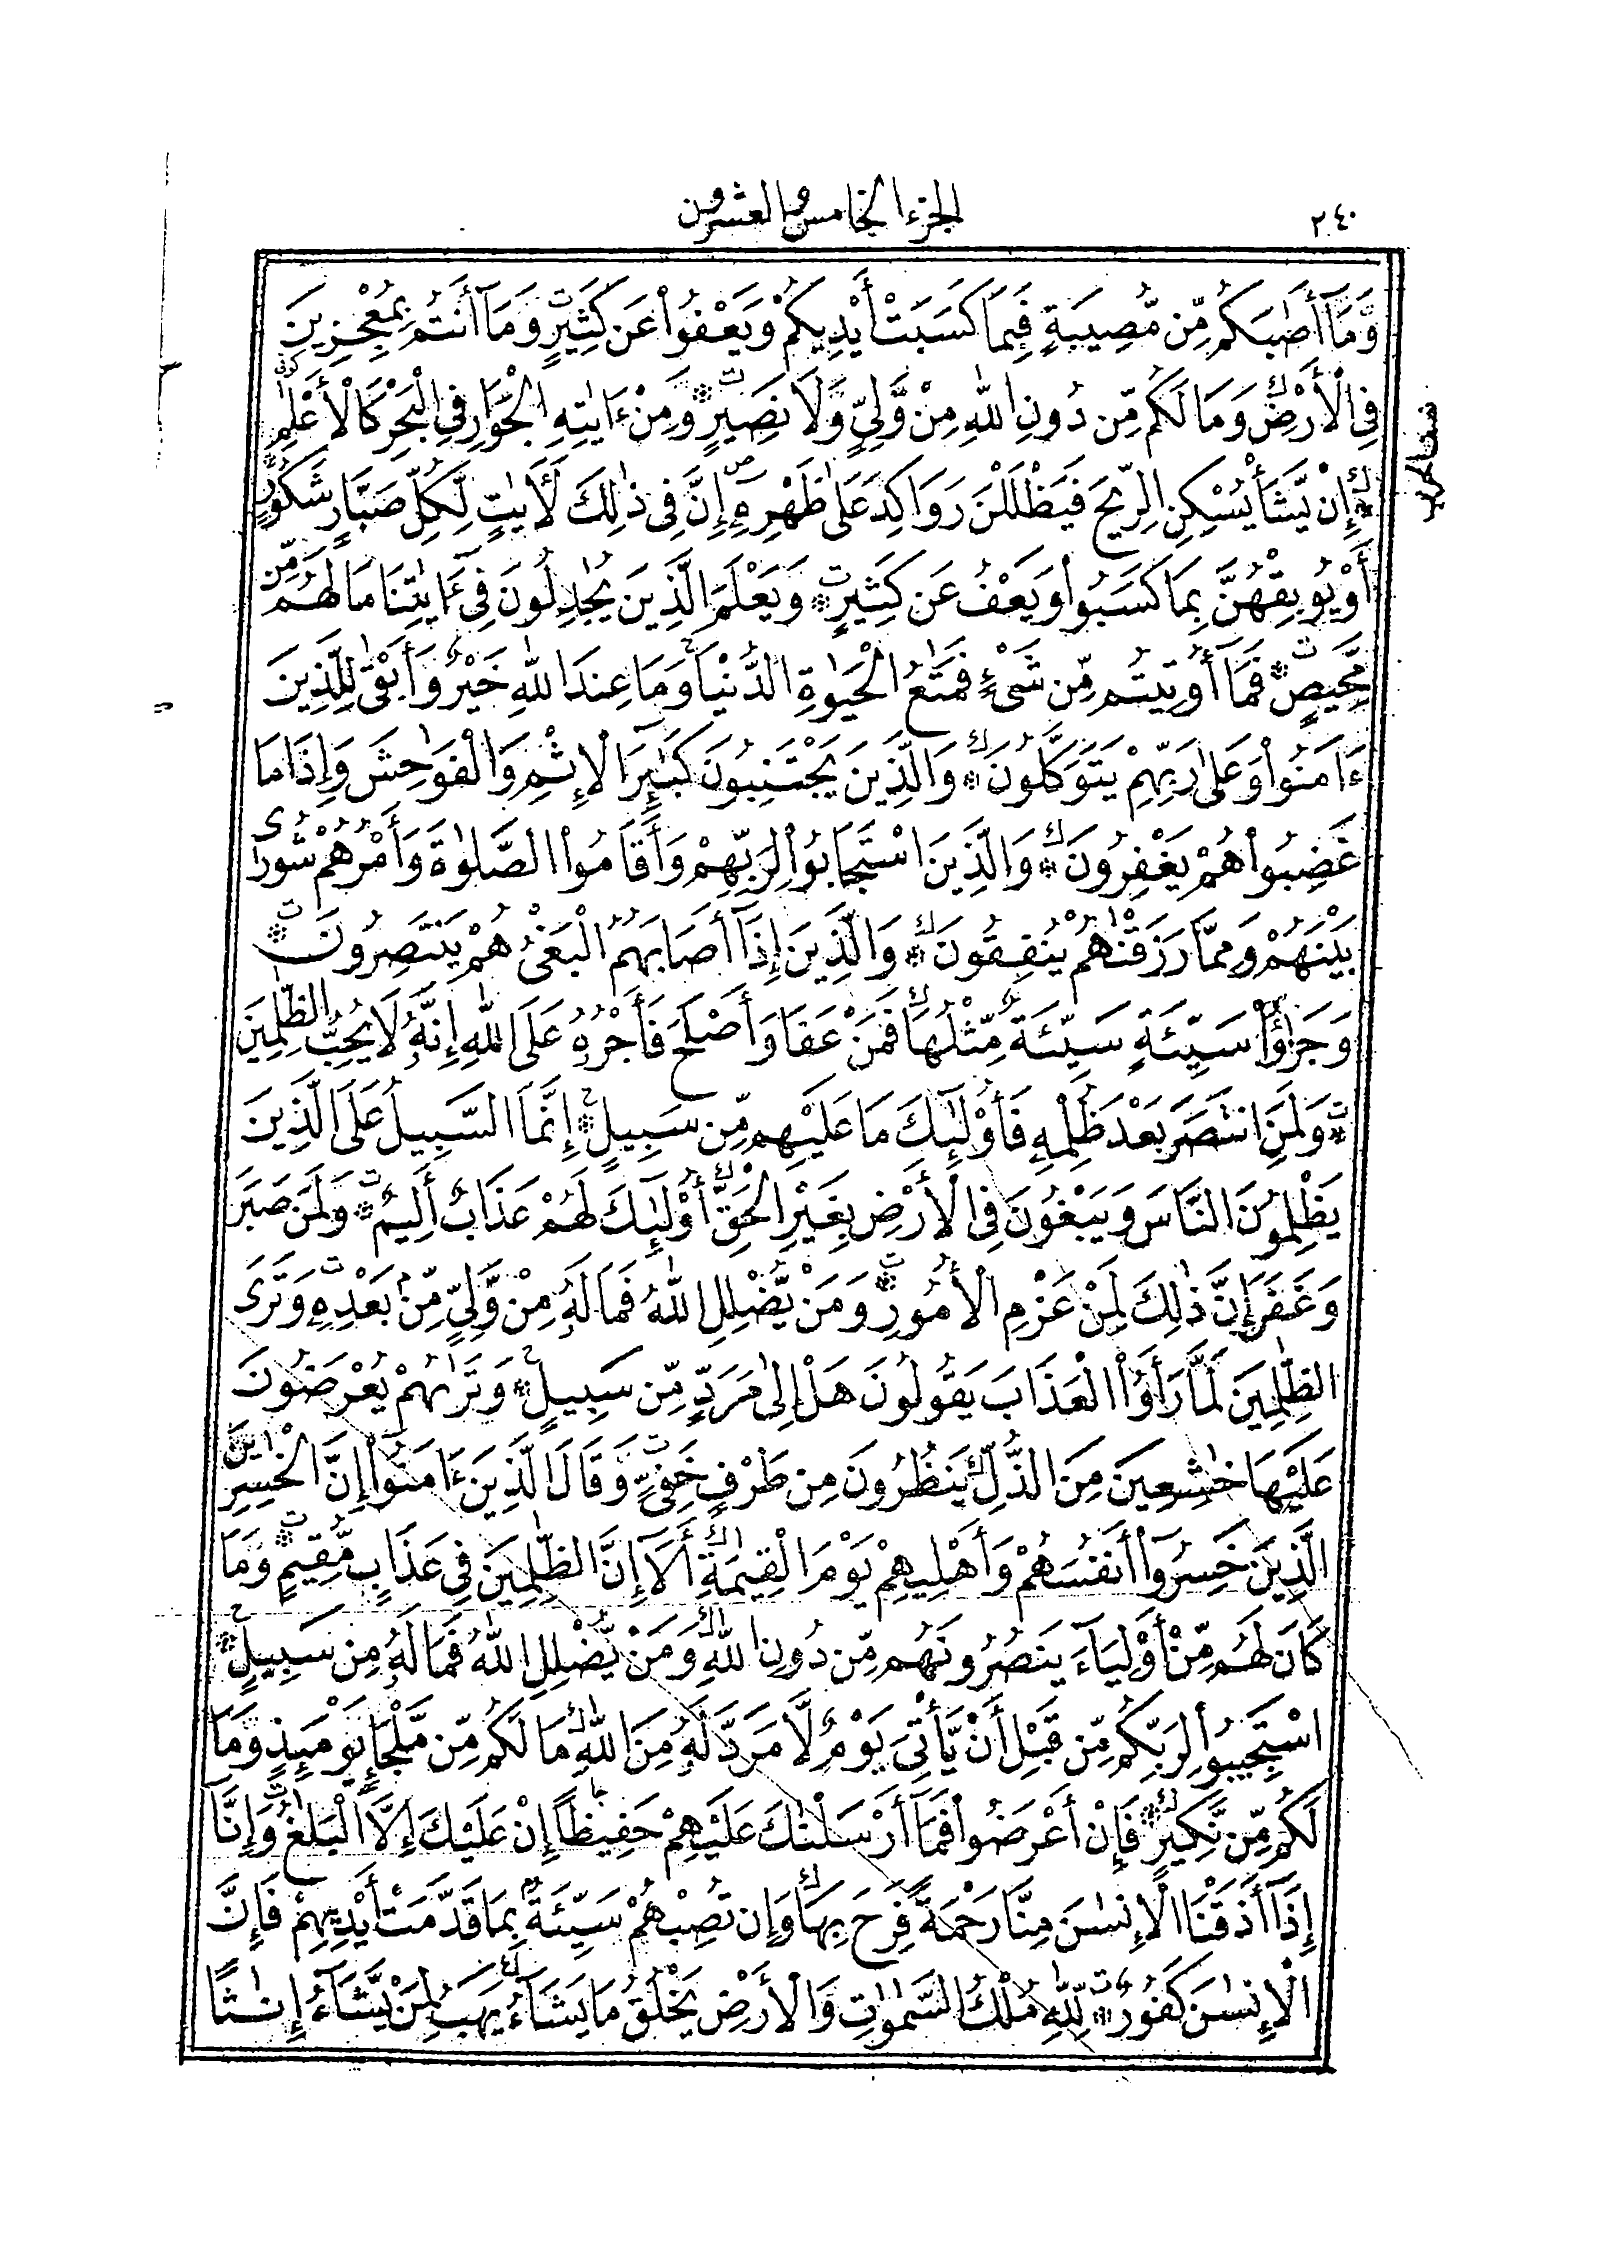 ٢٤٠
الجزء الخامس والعشرون
وَمَآ أَصَٰبَكُم مِّن مُّصِيبَةٍ فَبِمَا كَسَبَتْ أَيْدِيكُمْ وَيَعْفُوا۟ عَن كَثِيرٍ وَمَآ أَنتُم بِمُعْجِزِينَ
فِى الْأَرْضِ وَمَا لَكُم مِّن دُونِ اللَّهِ مِنْ وَّلِىٍّ وَّلَا نَصِيرٍ وَمِنْ ءَايَٰتِهِ الْجَوَارِ فِى الْبَحْرِ كَالْأَعْلَٰمِ
إِنْ يَّشَأْ يُسْكِنِ الرِّيحَ فَيَظْلَلْنَ رَوَاكِدَ عَلَىٰ ظَهْرِهِ إِنَّ فِى ذَٰلِكَ لَأَيَٰتٍ لِّكُلِّ صَبَّارٍ شَكُورٍ
أَوْ يُوبِقْهُنَّ بِمَا كَسَبُوا۟ وَيَعْفُ عَن كَثِيرٍ وَيَعْلَمَ الَّذِينَ يُجَٰدِلُونَ فِىٓ ءَايَٰتِنَا مَا لَهُم مِّن
مَّحِيصٍ فَمَآ أُوتِيتُم مِّن شَىْءٍ فَمَتَٰعُ الْحَيَوٰةِ الدُّنْيَا وَمَا عِندَ اللَّهِ خَيْرٌ وَأَبْقَىٰ لِلَّذِينَ
ءَامَنُوا۟ وَعَلَىٰ رَبِّهِمْ يَتَوَكَّلُونَ وَالَّذِينَ يَجْتَنِبُونَ كَبَٰٓئِرَ الْإِثْمِ وَالْفَوَٰحِشَ وَإِذَا مَا
غَضِبُوا۟ هُمْ يَغْفِرُونَ وَالَّذِينَ اسْتَجَابُوا۟ لِرَبِّهِمْ وَأَقَامُوا۟ الصَّلَوٰةَ وَأَمْرُهُمْ شُورَىٰ
بَيْنَهُمْ وَمِمَّا رَزَقْنَٰهُمْ يُنْفِقُونَ وَالَّذِينَ إِذَآ أَصَابَهُمُ الْبَغْىُ هُمْ يَنتَصِرُونَ
وَجَزَٰٓؤُا۟ سَيِّئَةٍ سَيِّئَةٌ مِّثْلُهَا فَمَنْ عَفَا وَأَصْلَحَ فَأَجْرُهُ عَلَى اللَّهِ إِنَّهُ لَا يُحِبُّ الظَّٰلِمِينَ
وَلَمَنِ انتَصَرَ بَعْدَ ظُلْمِهِ فَأُو۟لَٰٓئِكَ مَا عَلَيْهِم مِّن سَبِيلٍ إِنَّمَا السَّبِيلُ عَلَى الَّذِينَ
يَظْلِمُونَ النَّاسَ وَيَبْغُونَ فِى الْأَرْضِ بِغَيْرِ الْحَقِّ أُو۟لَٰٓئِكَ لَهُمْ عَذَابٌ أَلِيمٌ وَلَمَن صَبَرَ
وَغَفَرَ إِنَّ ذَٰلِكَ لَمِنْ عَزْمِ الْأُمُورِ وَمَنْ يُّضْلِلِ اللَّهُ فَمَا لَهُ مِنْ وَّلِىٍّ مِّنۢ بَعْدِهِ وَتَرَى
الظَّٰلِمِينَ لَمَّا رَأَوُا۟ الْعَذَابَ يَقُولُونَ هَلْ إِلَىٰ مَرَدٍّ مِّن سَبِيلٍ وَتَرَىٰهُمْ يُعْرَضُونَ
عَلَيْهَا خَٰشِعِينَ مِنَ الذُّلِّ يَنظُرُونَ مِن طَرْفٍ خَفِىٍّ وَقَالَ الَّذِينَ ءَامَنُوٓا۟ إِنَّ الْخَٰسِرِينَ
الَّذِينَ خَسِرُوٓا۟ أَنفُسَهُمْ وَأَهْلِيهِمْ يَوْمَ الْقِيَٰمَةِ أَلَآ إِنَّ الظَّٰلِمِينَ فِى عَذَابٍ مُّقِيمٍ وَمَا
كَانَ لَهُم مِّنْ أَوْلِيَآءَ يَنصُرُونَهُم مِّن دُونِ اللَّهِ وَمَنْ يُّضْلِلِ اللَّهُ فَمَا لَهُ مِن سَبِيلٍ
اسْتَجِيبُوا۟ لِرَبِّكُم مِّن قَبْلِ أَنْ يَّأْتِىَ يَوْمٌ لَّا مَرَدَّ لَهُ مِنَ اللَّهِ مَا لَكُم مِّن مَّلْجَإٍ يَوْمَئِذٍ وَمَا
لَكُم مِّن نَّكِيرٍ فَإِنْ أَعْرَضُوا۟ فَمَآ أَرْسَلْنَٰكَ عَلَيْهِمْ حَفِيظًا إِنْ عَلَيْكَ إِلَّا الْبَلَٰغُ وَإِنَّآ
إِذَآ أَذَقْنَا الْإِنسَٰنَ مِنَّا رَحْمَةً فَرِحَ بِهَا وَإِن تُصِبْهُمْ سَيِّئَةٌۢ بِمَا قَدَّمَتْ أَيْدِيهِمْ فَإِنَّ
الْإِنسَٰنَ كَفُورٌ لِلَّهِ مُلْكُ السَّمَٰوَٰتِ وَالْأَرْضِ يَخْلُقُ مَا يَشَآءُ يَهَبُ لِمَنْ يَّشَآءُ إِنَٰثًا